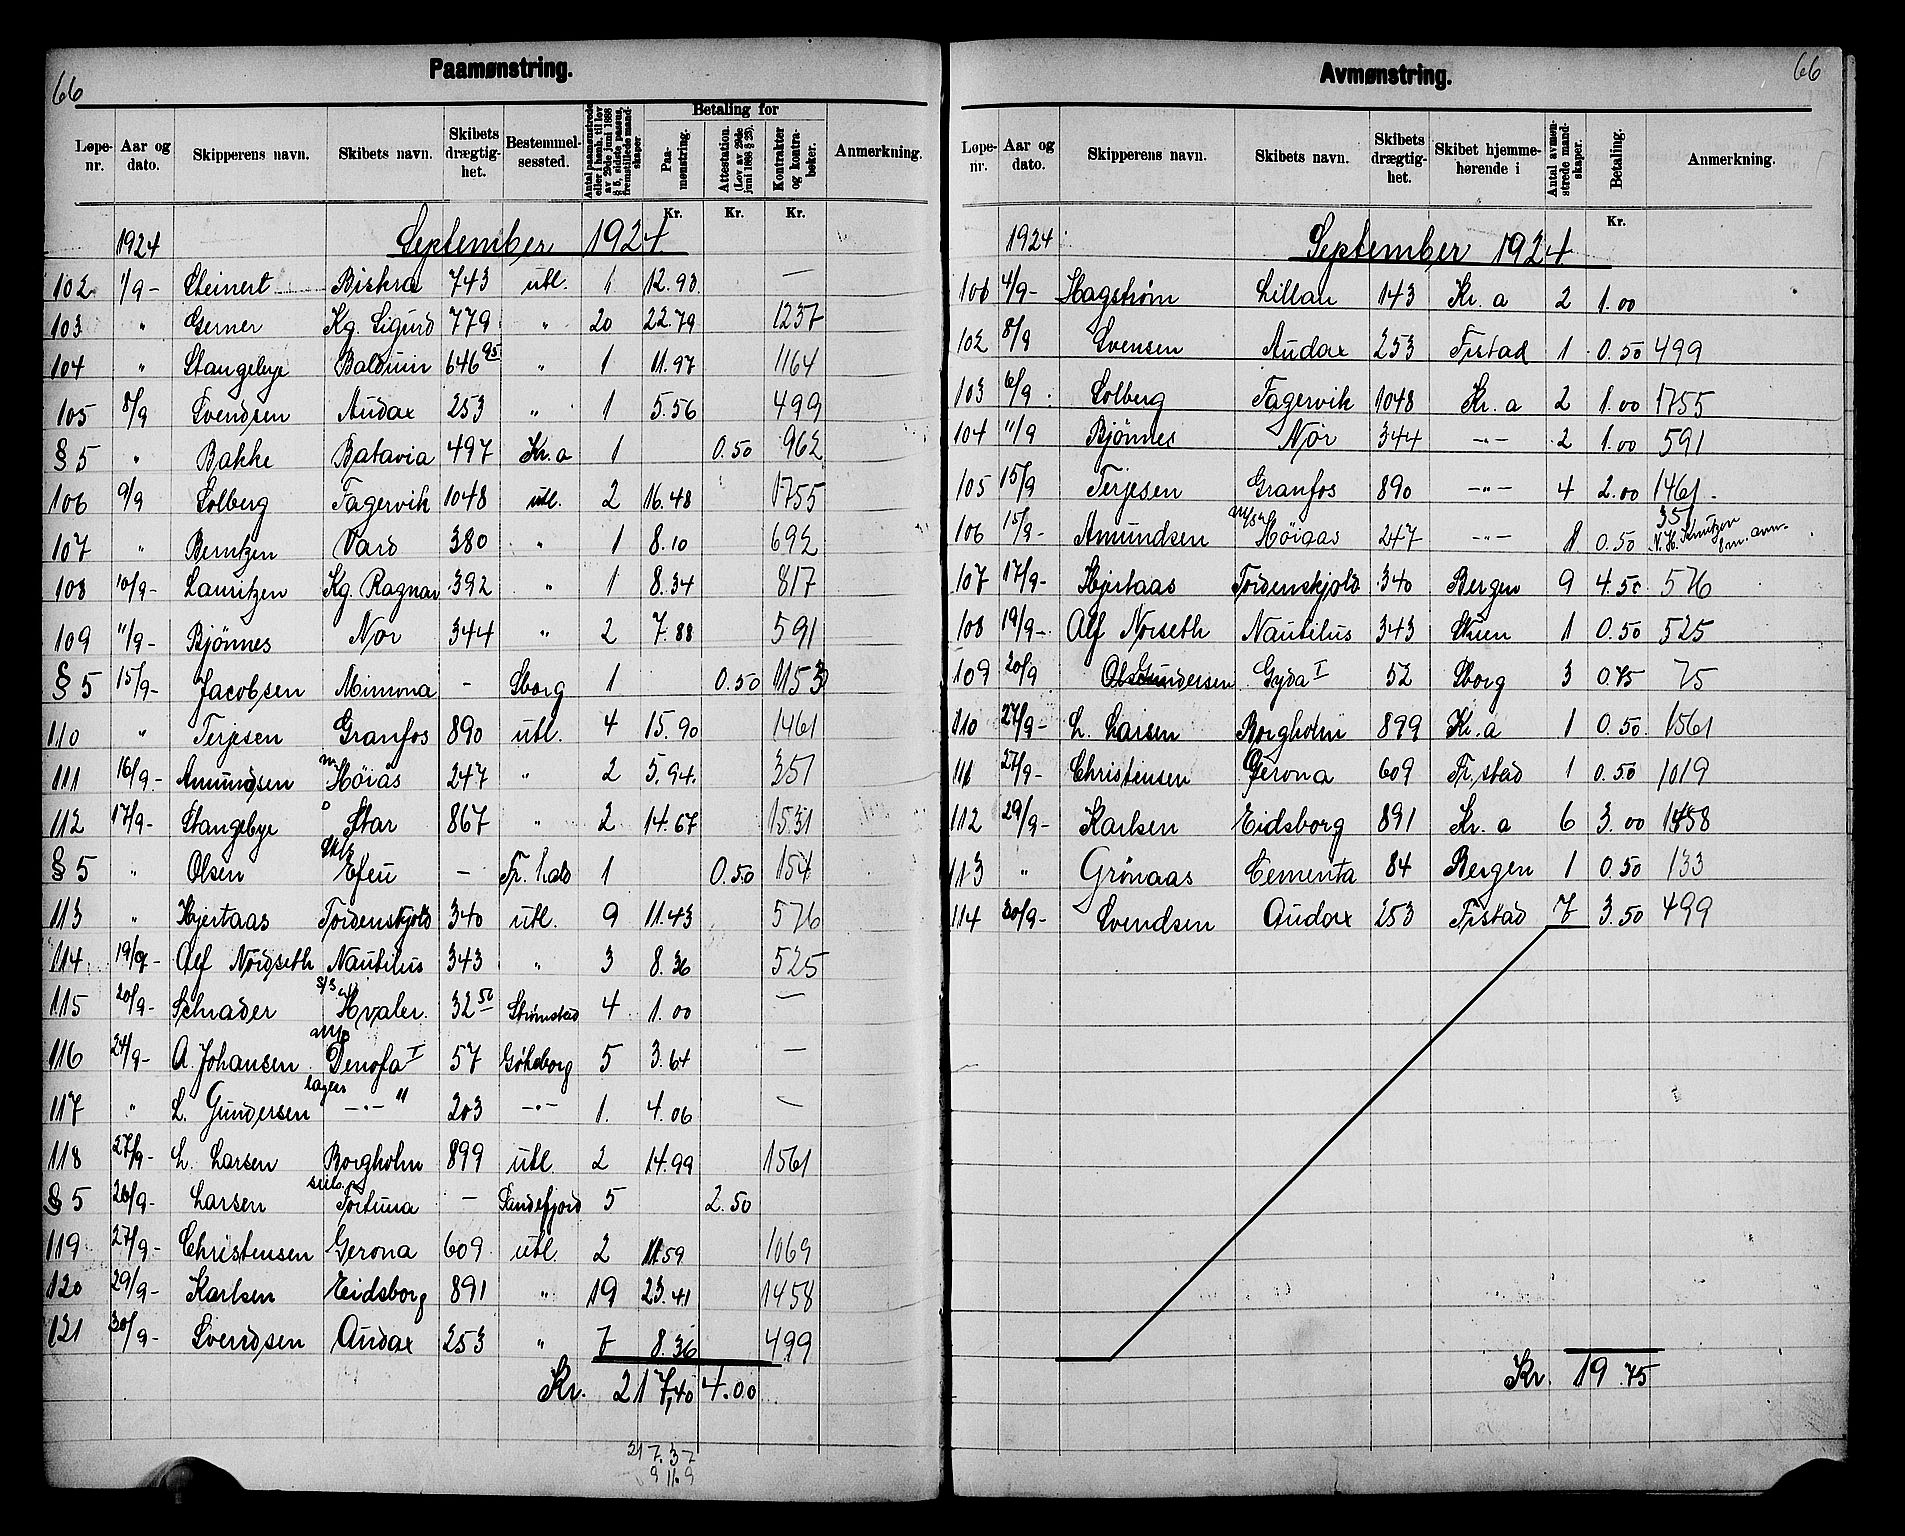 66
Paamønstring.
Løpe-nr. | Aar og dato. | Skipperens navn. | Skibets navn. | Skibets drægtig-het. | Bestemmel-sessted. | Antal paamønstrede eller i henh. til lov av 29de juni 1888 § 5, sidste passus, fremstillede mand-skaper | Betaling for | Paa-mønstring. | Attestation. (Lov av 29de juni 1888 § 23). | Kontrakter og kontra-bøker. | Anmerkning.
Kr. | Kr. | Kr.
1924 September 1924
102 1/9- Steinert Biskra 743 utl. 1 12.93 —
103 " Gerner Kg. Sigurd 779 " 20 22.79 1237
104 " Stangebye Balduin 646 95 " 1 11.97 1164
105 8/9 Svendsen Audax 253 " 1 5.56 499
§ 5 " Bakke Batavia 497 Kr.a 1 0.50 962
106 9/9 Solberg Fagervik 1048 utl. 2 16.48 1755
107 " Berntzen Vard 380 " 1 8.10 692
108 10/9- Lauritzen Kg. Ragnar 392 " 1 8.34 817
109 11/9- Bjönnes Nor 344 " 2 7.88 591
§ 5 15/9- Jacobsen Mimona - Sborg 1 0.50 1153
110 " Terjesen Granfos 890 utl. 4 15.90 1461
111 16/9- Amundsen m/ Höiås 247 " 2 5.94. 351
112 17/9- Stangebye Star 867 " 2 14.67 1531
§ 5 " Olsen Efeu - Fr.hald 1 0.50 154
113 " Hjertaas Tordenskjold 340 utl. 9 11.43 576
114 19/9- Alf Nordseth Nautilus 343 " 3 8.36 525
115 20/9- Schrader Hvaler. 32 50 Strömstad 4 1.00 —
116 24/9- A. Johansen Denofa I 57 Göteborg 5 3.64 —
117 " L. Gundersen —·— " 203 —·— 1. 4.06 —
118 27/9- L. Larsen Borgholm 899 utl. 2 14.99 1561
§ 5 20/9- Larsen Fortuna - Sandefjord 5 2.50
119 27/9- Christensen Gerona 609 utl. 2 11.59 1069
120 29/9- Karlsen Eidsborg 891 " 19 23.41 1458
121 30/9- Svendsen Audax 253 " 7 8.36 499
Kr. 217,40 4.00
217.37
66
Avmønstring.
Løpe-nr. | Aar og dato. | Skipperens navn. | Skibets navn. | Skibets drægtig-het. | Skibet hjemme-hørende i | Antal avmøn-strede mand-skaper. | Betaling. | Anmerkning.
Kr.
1924 September 1924
101 4/9- Hagström Lillan 143 Kr.a 2 1.00
102 8/9 Svensen Audax 253 Frstad 1 0.50 499
103 6/9 Solberg Fagervik 1048 Kr.a 2 1.00 1755
104 11/9 Bjönnes Nor 344 —"— 2 1.00 591
105 15/9 Terjesen Granfos 890 —"— 4 2.00 1461-
106 15/9- Amundsen Höiaas 247 —"— 1 0.50 351
107 17/9- Hjertaas Tordenskjold 340 Bergen 9 4.50 576
108 19/9- Alf Norseth Nautilus 343 Skien 1 0.50 525
109 20/9 Gundersen Gyda I 52 Sborg 3 0.75 75
110 27/9- L. Larsen Borgholm 899 Kr.a 1 0.50 1561
111 27/9- Christensen Gerona 609 Fr.stad 1 0.50 1019
112 29/9- Karlsen Eidsborg 891 Kr.a 6 3.00 1458
113 " Grönaas Cementa 84 Bergen 1 0.50 133
114 30/9- Svendsen Audax 253 Frstad 7 3.50 499
Kr. 19.75